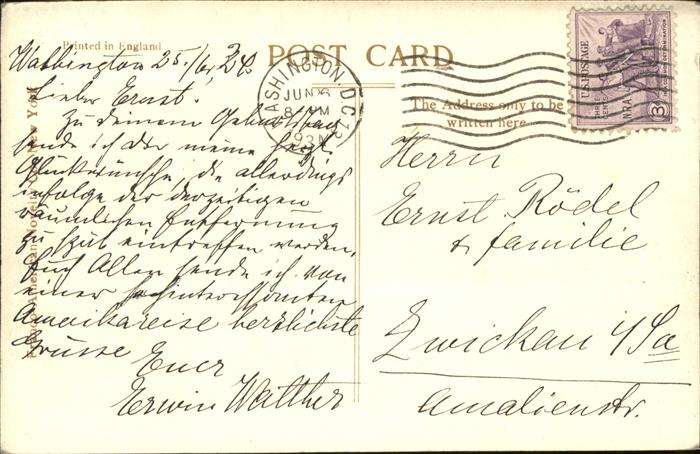 Printed in England
POST CARD
The Address only to be
written here.
WASHINGTON, D.C.
JUN
U.S. POSTAGE
3¢
Washington 25./6.
Lieber Ernst!
Zu deinem Geburtstag
sende ich dir meine herzl.
Glückwünsche, die allerdings
infolge der derzeitigen
räumlichen Entfernung
zu spät eintreffen werden.
Euch Allen sende ich von
einer
Amerikareise herzlichste
Grüsse Euer
Erwin Walther
Herrn
Ernst Rödel
& familie
Zwickau i/Sa
Amalienstr.
New York